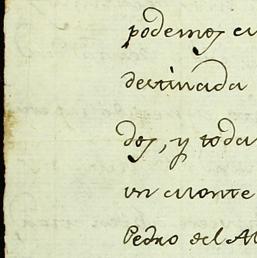 podemos cu
destinada
dos, y toda
un monte
Pedro del Al